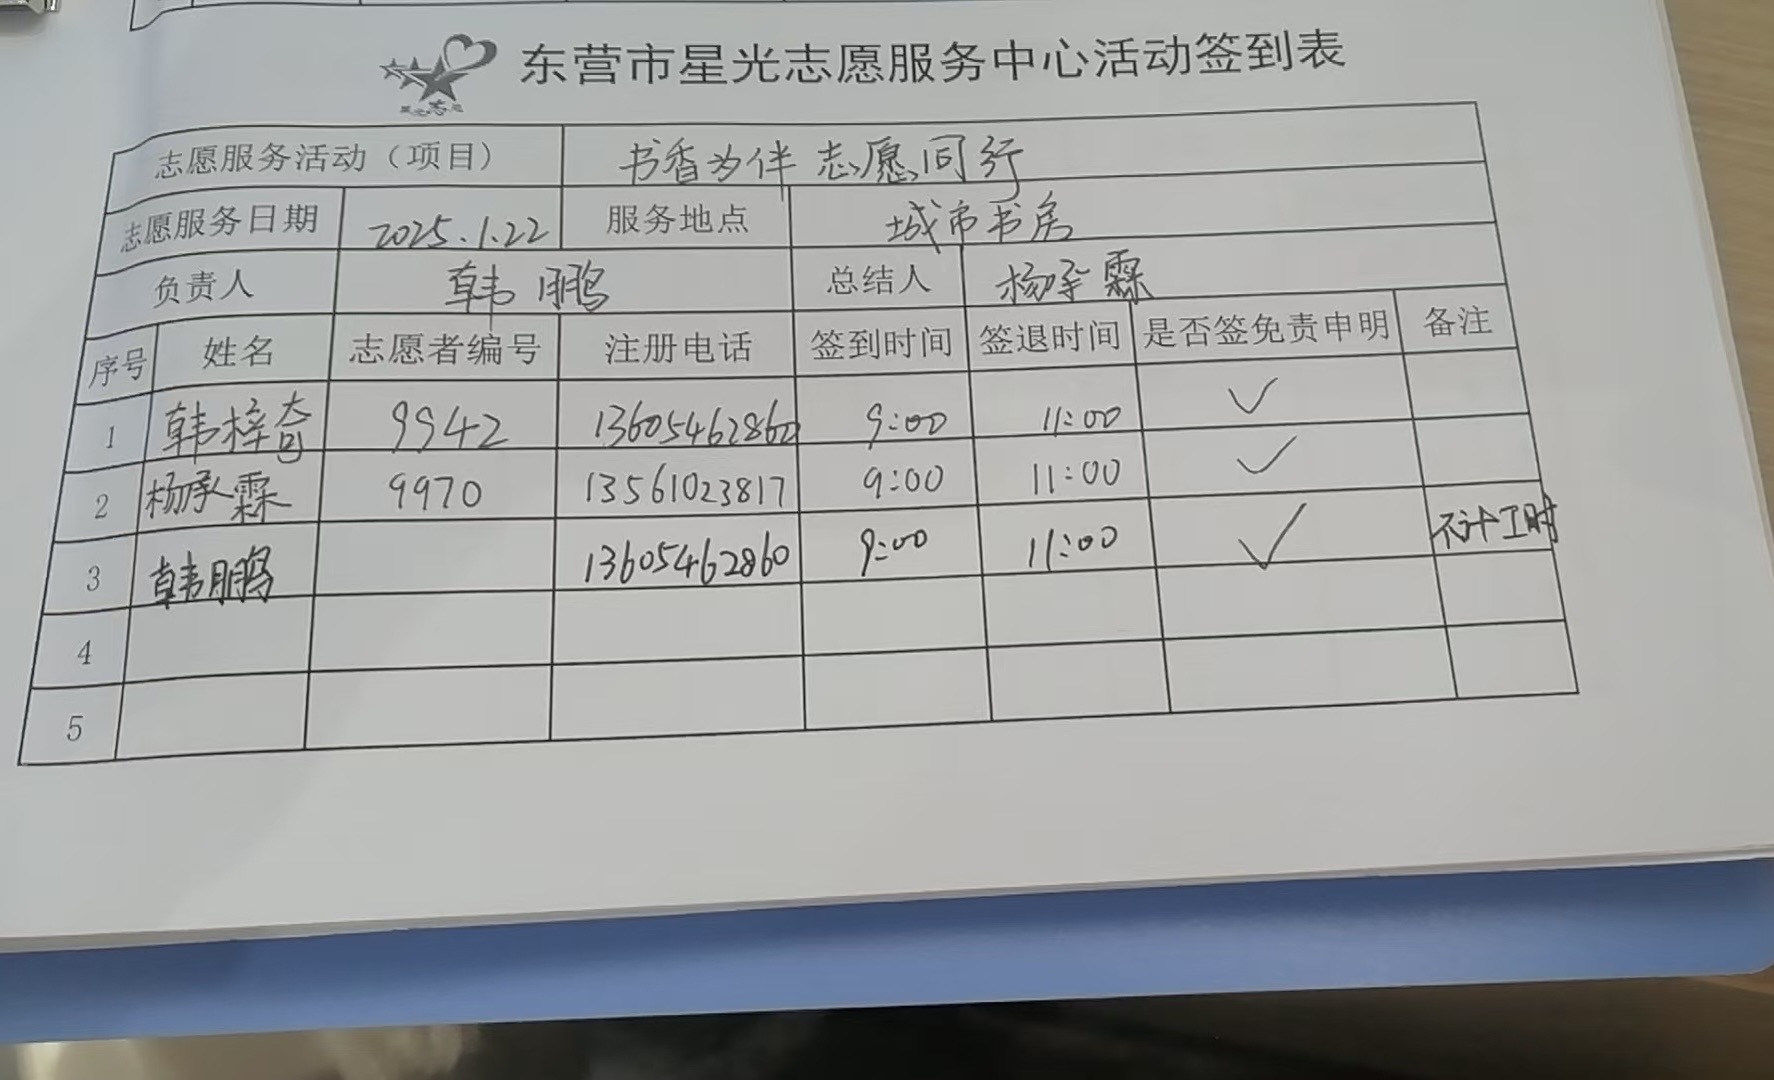 东营市星光志愿服务中心活动签到表
志愿服务活动（项目） 书香为伴 志愿同行
志愿服务日期 2025.1.22 服务地点 城市书房
负责人 韩鹏 总结人 杨承霖
序号 姓名 志愿者编号 注册电话 签到时间 签退时间 是否签免责申明 备注
1 韩梓奇 9942 13605462860 9:00 11:00 ✓
2 杨承霖 9970 13561023817 9:00 11:00 ✓
3 韩鹏 13605462860 9:00 11:00 ✓ 不计工时
4
5